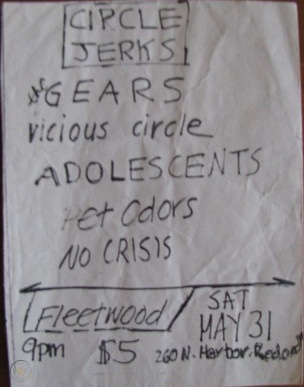 CIRCLE
JERKS
the GEARS
vicious circle
ADOLESCENTS
Pet Odors
NO CRISIS
Fleetwood SAT
MAY 31
9pm $5 260 N. Harbor. Redondo